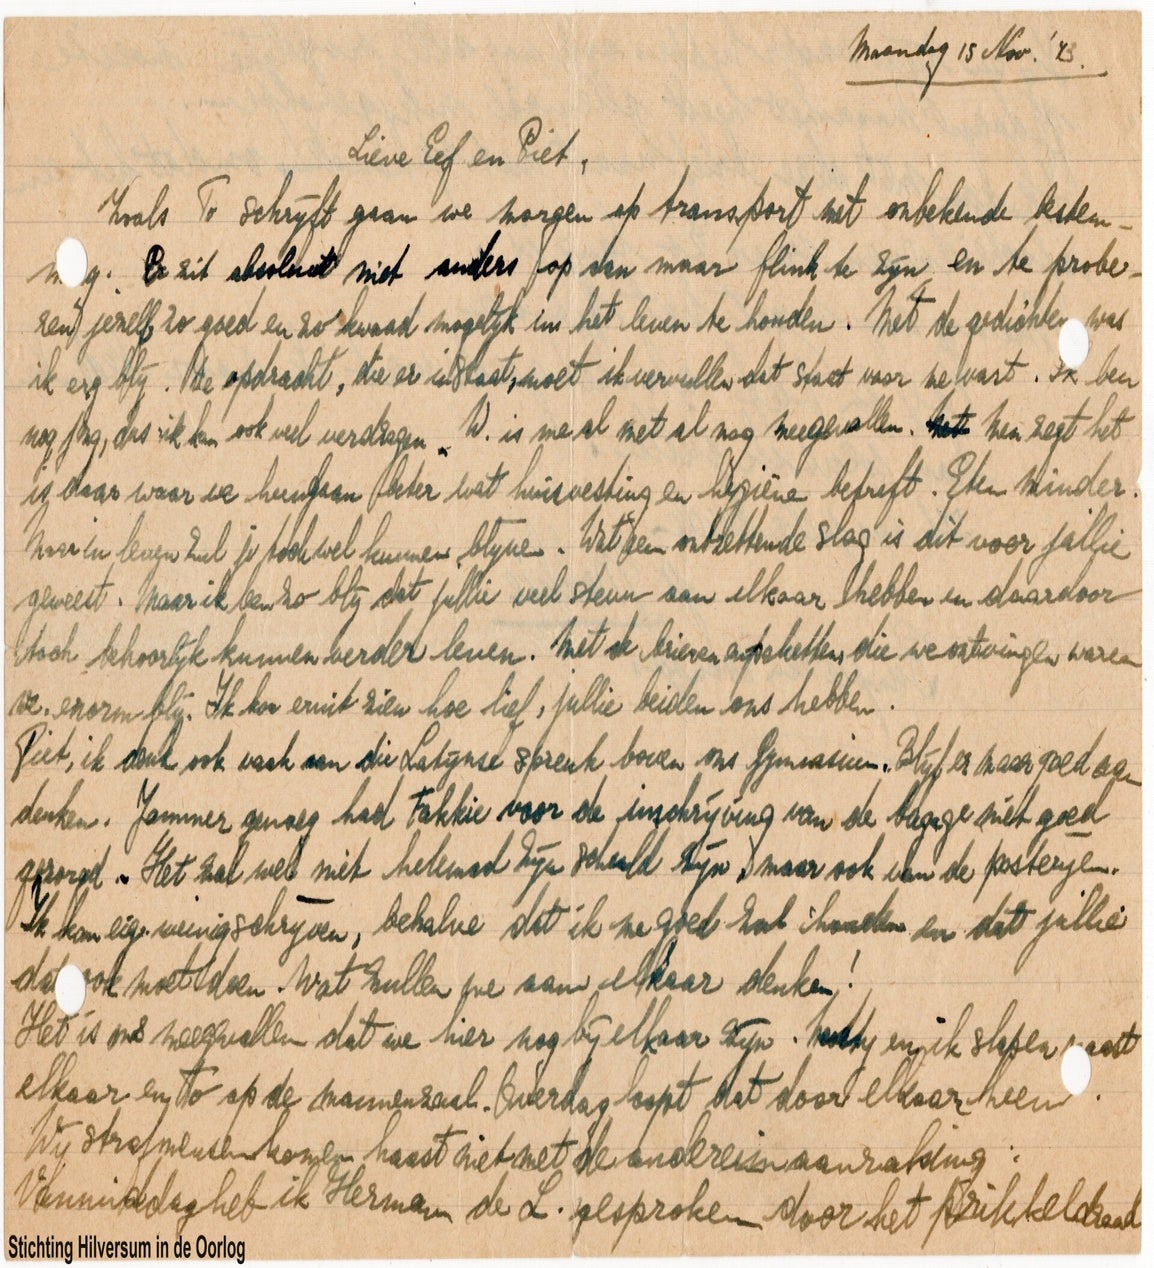 Maandag 15 Nov. '43.
Lieve Eef en Piet,
Zoals To schrijft gaan we morgen op transport met onbekende bestem-
m g. Er zit absoluut niet anders op dan maar flink te zijn en te probe-
ren jezelf zo goed en zo kwaad mogelijk in het leven te houden. Met de gedichten was
ik erg blij. De opdracht, die er in staat, moet ik vervullen dat staat voor me vast. Ik ben
nog jong, dus ik kan ook veel verdragen. W. is me al met al nog meegevallen. Men zegt het
is daar waar we heengaan beter wat huisvesting en hygiëne betreft. Eten minder.
Maar in leven zul je toch wel kunnen blijven. Wat een ontzettende slag is dit voor jullie
geweest. Maar ik ben zo blij dat jullie veel steun aan elkaar hebben en daardoor
toch behoorlijk kunnen verder leven. Met de brieven en pakketten, die we ontvingen waren
we enorm blij. Ik kon eruit zien hoe lief, jullie beiden ons hebben.
Piet, ik denk ook vaak aan die Latijnse spreuk boven ons Gymnasium. Blijf er maar goed aan
denken. Jammer genoeg had Fakkie voor de inschrijving van de bagage niet goed
gezorgd. Het zal wel niet helemaal zijn schuld zijn, maar ook van de posterijen.
Ik kan weinig schrijven, behalve dat ik me goed zal houden en dat jullie
dat ook moet doen. Wat zullen we aan elkaar denken!
Het is ons meegevallen dat we hier nog bij elkaar zijn. en ik slapen naast
elkaar en To op de mannenzaal. Overdag loopt dat door elkaar heen.
Wij strafmensen komen haast niet met de anderen in aanraking.
Vanmiddag heb ik Herman de L. gesproken door het prikkeldraad
Stichting Hilversum in de Oorlog